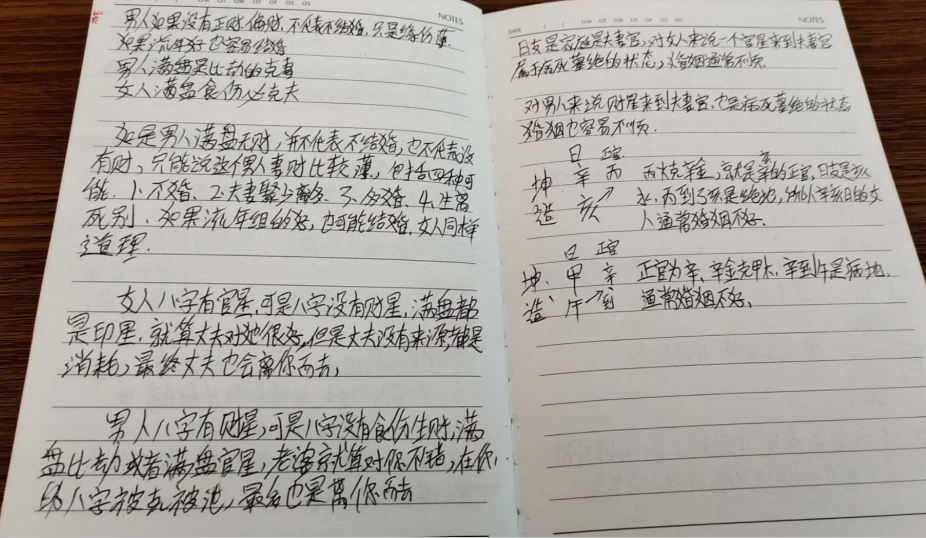 NOTES
男人如果没有正财偏财,不代表不结婚,只是缘份薄.
如果流年好也容易结婚
男人满盘是比劫的克妻
女人满盘食伤必克夫
如是男人满盘无财,并不代表不结婚,也不代表没
有财,只能说这个男人妻财比较薄,包括四种可
能.1.不婚、2.夫妻聚少离多、3.多婚、4.生离
死别.如果流年组的好,也可能结婚.女人同样
道理.
女人八字有官星,可是八字没有财星,满盘都
是印星.就算丈夫对她很好,但是丈夫没有来源,都是
消耗,最终丈夫也会离你而去,
男人八字有财星,可是八字没有食伤生财,满
盘比劫或者满盘官星,老婆就算对你不错,在你
八字被克被泄,最后也是离你而去
DATE
NOTES
日支是家庭是夫妻宫,对女人来说一个官星来到夫妻宫
属于病死墓绝的状态,婚姻通常不顺.
对男人来说财星来到夫妻宫,也是病死墓绝的状态
婚姻也容易不顺.
日 官
坤 辛 丙 丙火克辛金,就是辛的正官,日支是亥
造 亥 水,丙到了亥是绝地,所以辛亥日的女
人通常婚姻不好.
日 官
坤、甲 辛 正官为辛,辛金克甲木,辛到午是病地.
造、午 通常婚姻不好、